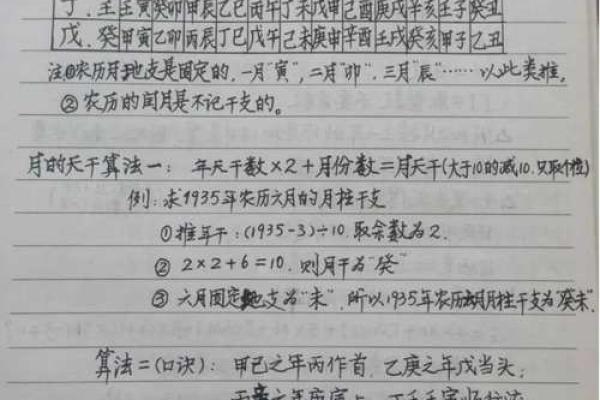 丁.壬 壬寅 癸卯 甲辰 乙巳 丙午 丁未 戊申 己酉 庚戌 辛亥 壬子 癸丑
戊.癸 甲寅 乙卯 丙辰 丁巳 戊午 己未 庚申 辛酉 壬戌 癸亥 甲子 乙丑
注①农历月地支是固定的.一月"寅",二月"卯".三月"辰"……以此类推.
②农历的闰月是不记干支的。
月的天干算法一: 年天干数×2+月份数=月天干(大于10的减10.只取个位)
例:求1935年农历六月的月柱干支
①推年干:(1935-3)÷10.取余数为2.
② 2×2+6=10.则月干为"癸"
③ 六月固定地支为"未".所以1935年农历六月月柱干支为"癸未".
算法二(口诀): 甲己之年丙作首.乙庚之年戊当头;
丙辛之年